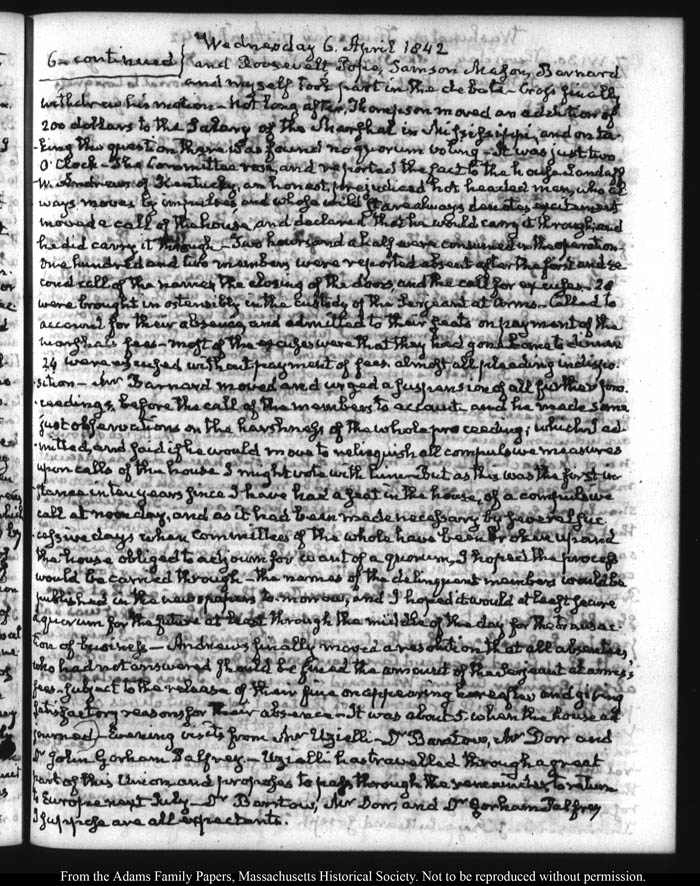 Wednesday 6. April 1842
6. continued} and Roosevelt Pope, Samson Mason, Barnard
and myself took part in the debate - Cross finally
withdrew his motion - Not long after, Thompson moved an addition of
200 dollars to the Salary of the Marshal in Mississippi, and on ta-
-king the question there was found no quorum voting - It was just two
O'Clock - The Committee rose, and reported the fact to the house. Landaff
W. Andrews of Kentucky, an honest, prejudiced hot headed man, who al-
ways moves by impulses and whose wild stare always denotes excitement
moved a call of the house, and declared that he would carry it through, and
he did carry it through - Two hours and a half were consumed in the operation.
One hundred and two members were reported absent after the first and se-
cond call of the names, the closing of the doors, and the call for excuses. 28
were brought in ostensibly in the custody of the Sergeant at Arms - Called to
account for their absence, and admitted to their seats on payment of the
marshals fees - most of the excuses were that they had gone home to dinner
24 were excused without payment of fees. almost all pleading indispo-
-sition - Mr Barnard moved and urged a suspension of all further pro-
-ceedings, before the call of the members to account and he made some
just observations on the harshness of the whole proceeding; which I ad-
-mitted, and said if he would move to relinquish all compulsive measures
upon calls of the house I might vote with him. But as this was the first in-
stance in ten years since I have had a seat in the house, of a compulsive
call at noon day, and as it had been made necessary by several suc-
cessive days when Committees of the whole have been broken up and
the house obliged to adjourn for want of a quorum, I hoped the process
would be carried through - the names of the delinquent members would be
published in the newspapers to-morrow, and I hoped it would at least secure
a quorum for the future at least through the middle of the day for the transac-
tion of business - Andrews finally moved a resolution that all absentees,
who had not answered should be fined the amount of the Sergeant at arms's
fees. subject to the release of their fine on appearing hereafter and giving
satisfactory reasons for their absence - It was about 5. when the house ad-
journed - Evening visits from Mr Uzielli - Dr Barstow, Mr Dorr and
Dr John Gorham Palfrey - Uzielli has travelled through a great
part of this Union and proposes to pass through the remainder, to return
to Europe next July - Dr Barstow, Mr Dorr, and Dr Gorham Palfrey
I suppose are all expectants.
From the Adams Family Papers, Massachusetts Historical Society. Not to be reproduced without permission.